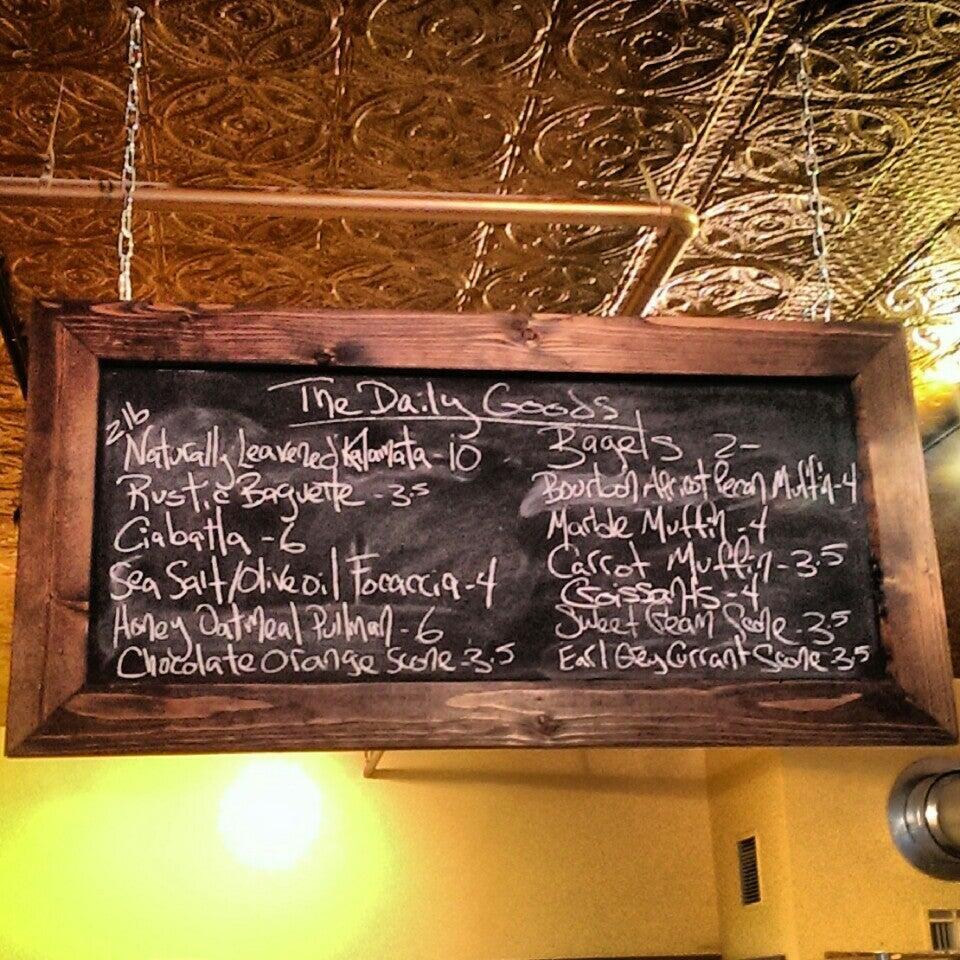 The Daily Goods
2lb
Naturally Leavened Kalamata - 10
Rustic Baguette - 3.5
Ciabatta - 6
Sea Salt/Olive oil Focaccia - 4
Honey Oatmeal Pullman - 6
Chocolate Orange Scone - 3.5
Bagels 2-
Bourbon Apricot Pecan Muffin - 4
Marble Muffin - 4
Carrot Muffin - 3.5
Croissants - 4
Sweet Cream Scone - 3.5
Earl Grey Currant Scone - 3.5